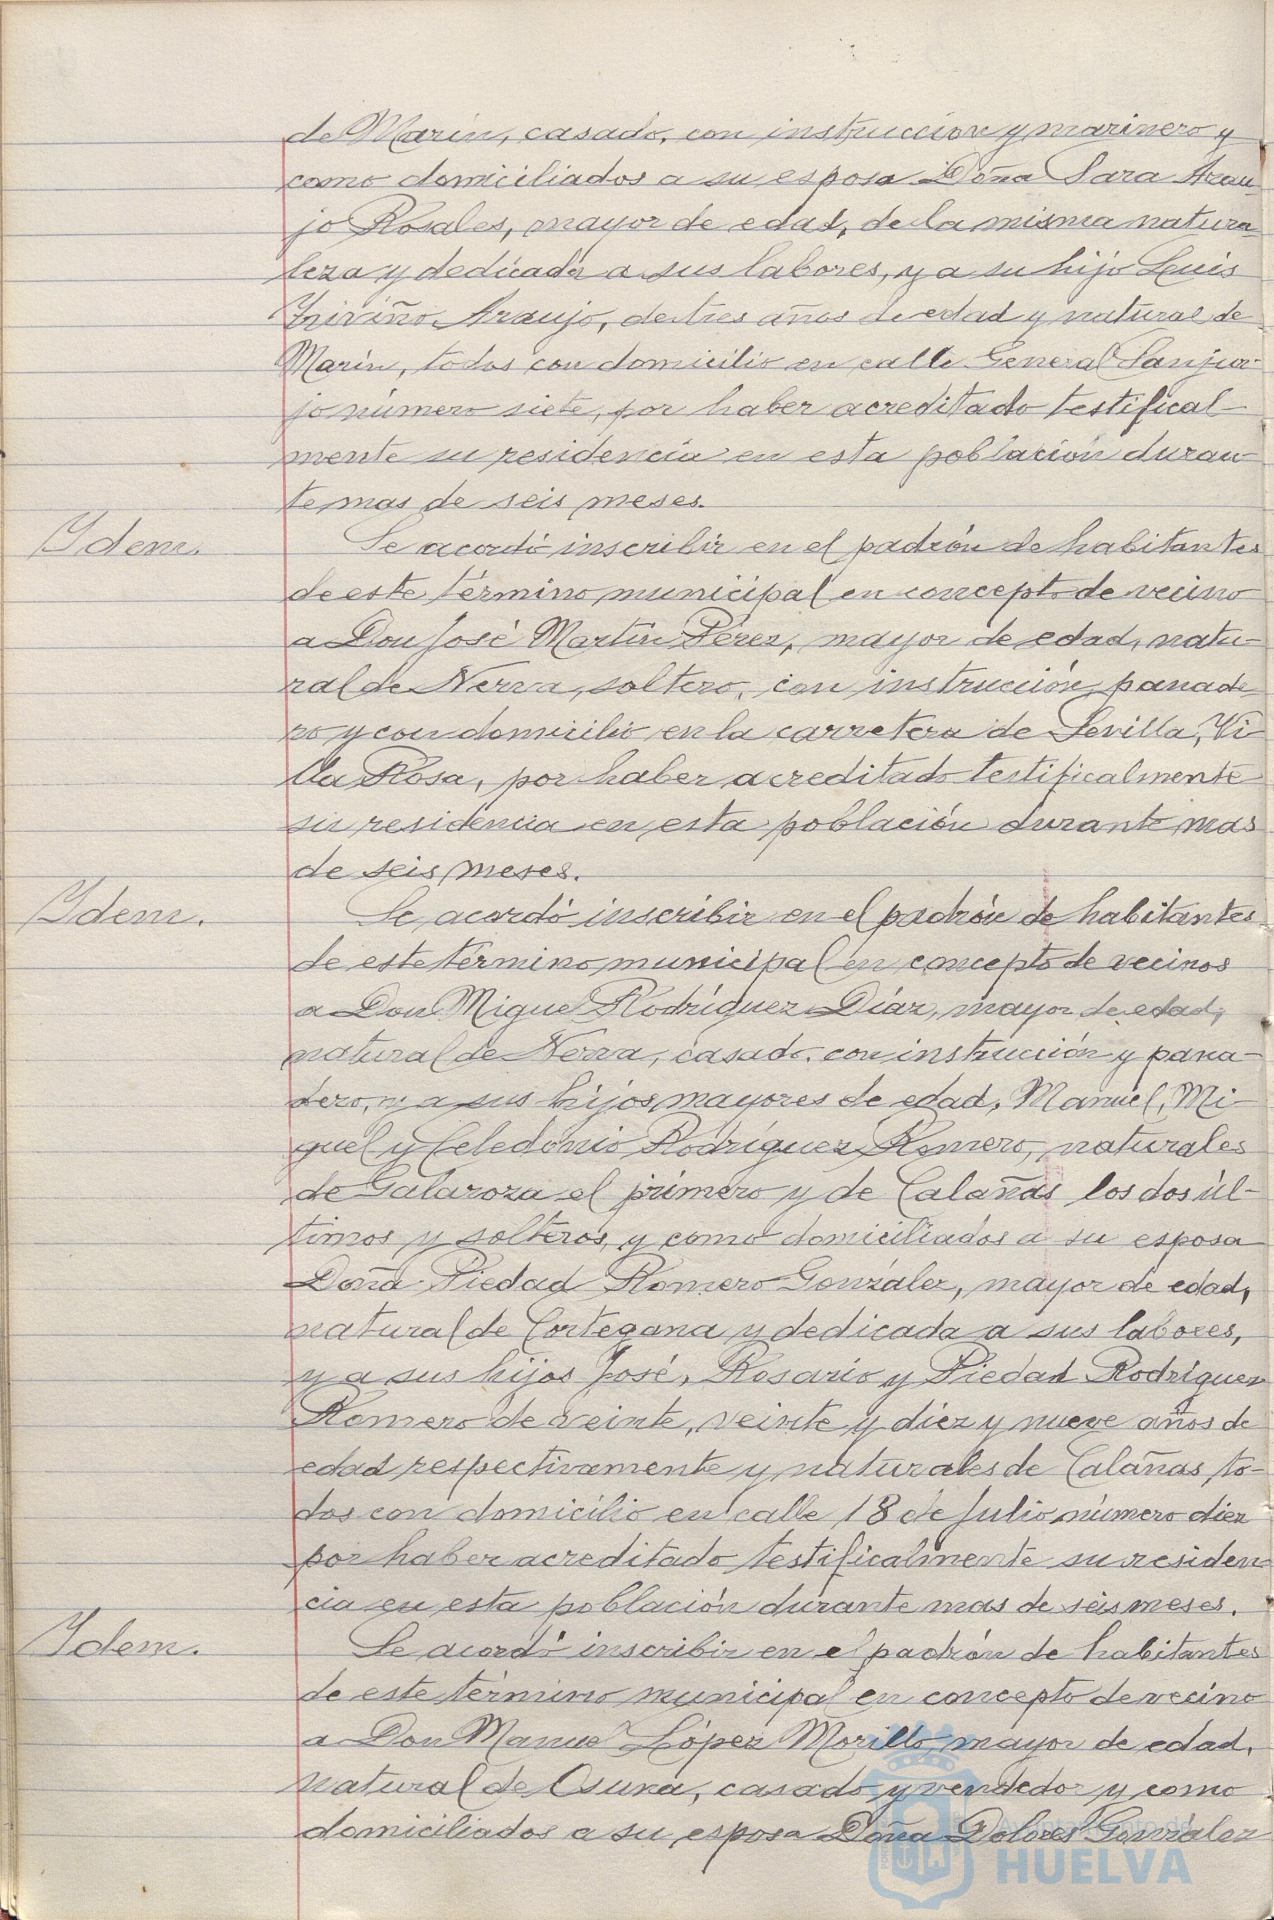 de Marín, casado, con instrucción y marinero y
como domiciliados a su esposa Doña Sara Arau-
jo Rosales, mayor de edad, de la misma natura-
leza y dedicada a sus labores, y a su hijo Luis
Triviño Araujo, de tres años de edad y natural de
Marín, todos con domicilio en calle General Sanjur-
jo número siete, por haber acreditado testifical-
mente su residencia en esta población duran-
te mas de seis meses.
Ydem. Se acordó inscribir en el padrón de habitantes
de este término municipal en concepto de vecino
a Don José Martín Pérez, mayor de edad, natu-
ral de Nerva, soltero, con instrucción, panade-
ro y con domicilio en la carretera de Sevilla, Vi-
lla Rosa, por haber acreditado testificalmente
su residencia en esta población durante mas
de seis meses.
Ydem. Se acordó inscribir en el padrón de habitantes
de este término municipal en concepto de vecinos
a Don Miguel Rodríguez Díaz, mayor de edad,
natural de Nerva, casado, con instrucción y pana-
dero, y a sus hijos mayores de edad, Manuel, Mi-
guel y Celedonio Rodríguez Romero, naturales
de Galaroza el primero y de Calañas los dos úl-
timos y solteros, y como domiciliados a su esposa
Doña Piedad Romero González, mayor de edad,
natural de Cortegana y dedicada a sus labores,
y a sus hijos José, Rosario y Piedad Rodríguez
Romero de veinte, veinte y diez y nueve años de
edad respectivamente y naturales de Calañas, to-
dos con domicilio en calle 18 de Julio número diez
por haber acreditado testificalmente su residen-
cia en esta población durante mas de seis meses.
Ydem. Se acordó inscribir en el padrón de habitantes
de este término municipal en concepto de vecino
a Don Manuel López Morillo, mayor de edad,
natural de Osuna, casado y vendedor y como
domiciliados a su esposa Doña Dolores González
Ayuntamiento de
HUELVA